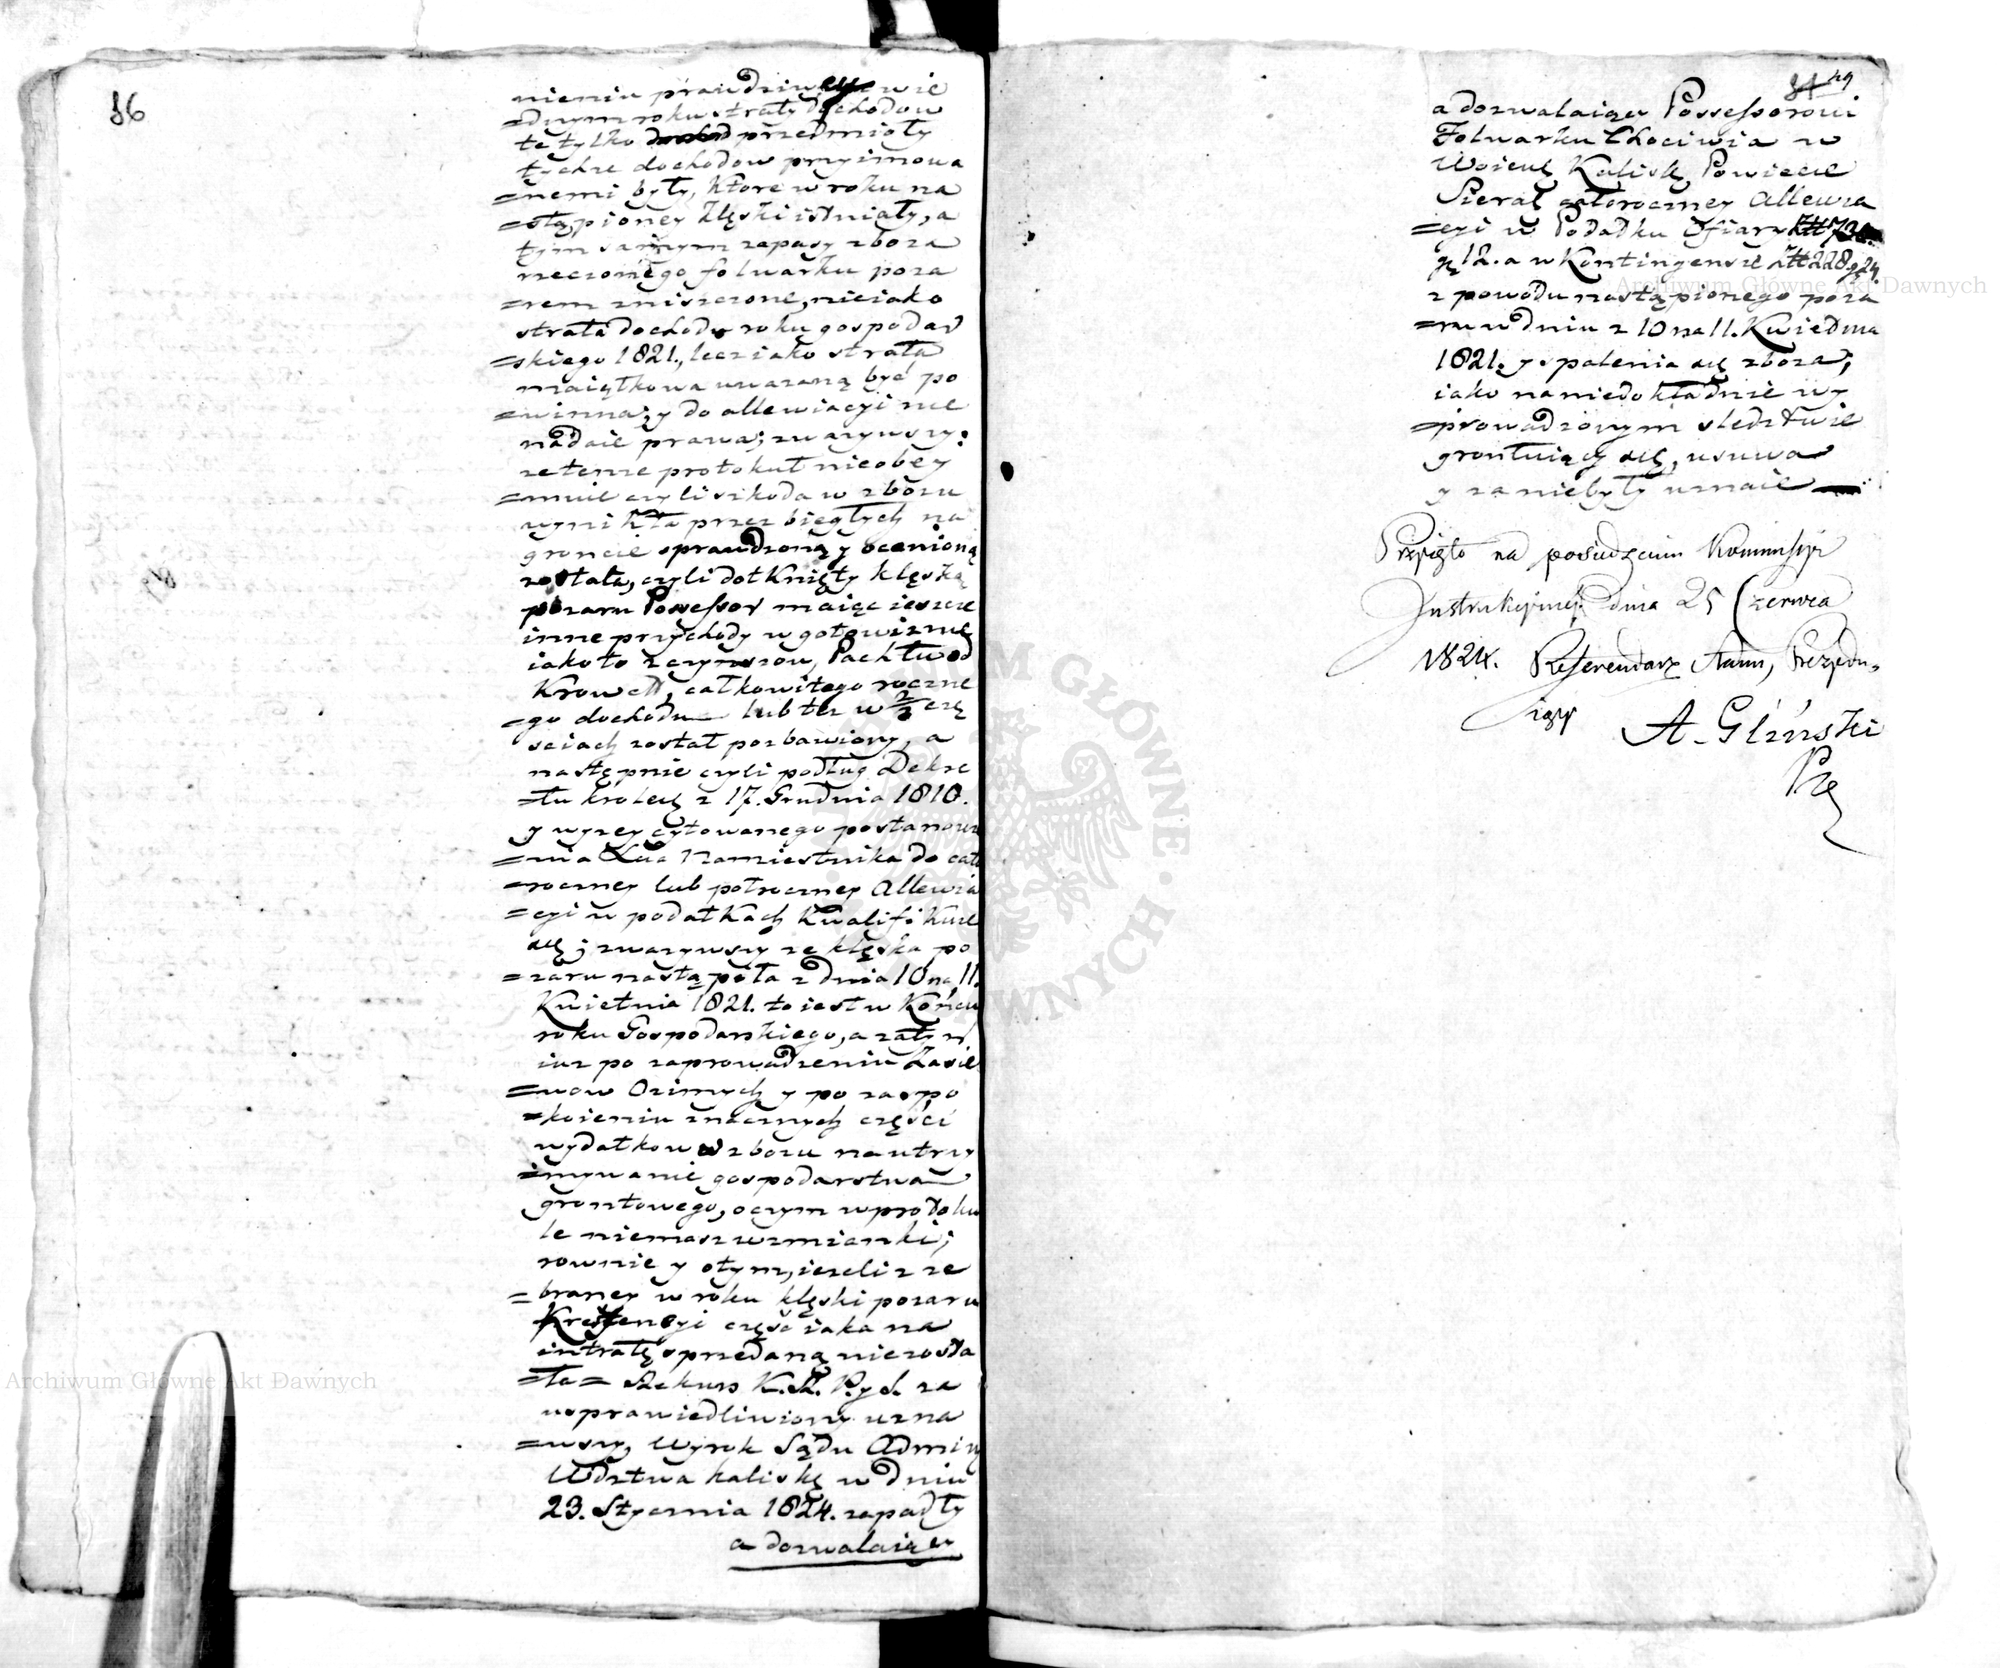 86
nieniu prawdziwey w ie
=dnym roku straty dochodow
te tylko przedmioty
tychże dochodow przyimowa
=nemi były, ktore w roku na
=stąpioney klęski istniały, a
tym samym zapasy zboża
rzeczonego folwarku poża
=rem zniszczone, nieiako
strata dochodu roku gospodar
=skiego 1821., lecz iako strata
maiątkowa uważaną być po
=winna; y do allewiacyi nie
nadaie prawa; zważywszy:
że tenże protokuł nieobey
=muie czyli szkoda w zbożu
wynikła przez biegłych na
groncie sprawdzoną y ocenioną
została, czyli dotknięty klęską
pożaru Possessor maiąc ieszcze
inne przychody w gotowiznie
iako to z czynszow, Pachtu od
Krow etc, całkowitego roczne
=go dochodu lub też w 2/3 czę
sciach został pozbawiony, a
następnie czyli podług Dekre
=tu Krolewskę z 17. Grudnia 1810.
y wyżey cytowanego postanowie
=nia Xcia Namiestnika do cało
=roczney lub połroczney Allewia
=cyi w podatkach kwalifikuie
się; zważywszy że klęska po
=żaru nastąpiła z dnia 10 na 11.
Kwietnia 1821. to iest w Końcu
roku Gospodarskiego, a zatym
iuż po zaprowadzeniu Zasie
=wow Ozimych y po zaspo
=koieniu znacznych części
wydatkow w zbożu na utrzy
=mywanie gospodarstwa
grontowego, o czym w protoku
le niemasz wzmianki;
rownie y o tym, ieżeli z ze
=braney w roku klęski pożaru
Krestencyi część iaka na
intratę sprzedaną niezosta
=ła= Rekurs K. R. P. y S. za
usprawiedliwiony uzna
=wszy, Wyrok Sądu Adminy
Wdztwa Kaliskę w dniu
23. Stycznia 1824. zapadły
a dozwalaiący
49
a dozwalaiący Possessorowi
Folwarku Chociwia w
Woiewę Kaliskę Powiecie
Sieradz całoroczney Allewia
=cyi w Podatku Ofiary
gę 12. a w Kontingensie Złt 228. g 24
z powodu nastąpionego poża
=ru w dniu z 10 na 11. Kwietnia
1821. y spalenia się zboża,
iako na niedokładnie wy
=prowadzonym sledztwie
grontuiący się, usuwa
y za niebyły uznaie
Przyięto na posiedzeniu Kommissyi
Instrukcyiney dnia 25 Czerwca
1824. Referendarz Stanu, Prezydu=
iący A. Gliński
Archiwum Główne Akt Dawnych
Archiwum Główne Akt Dawnych